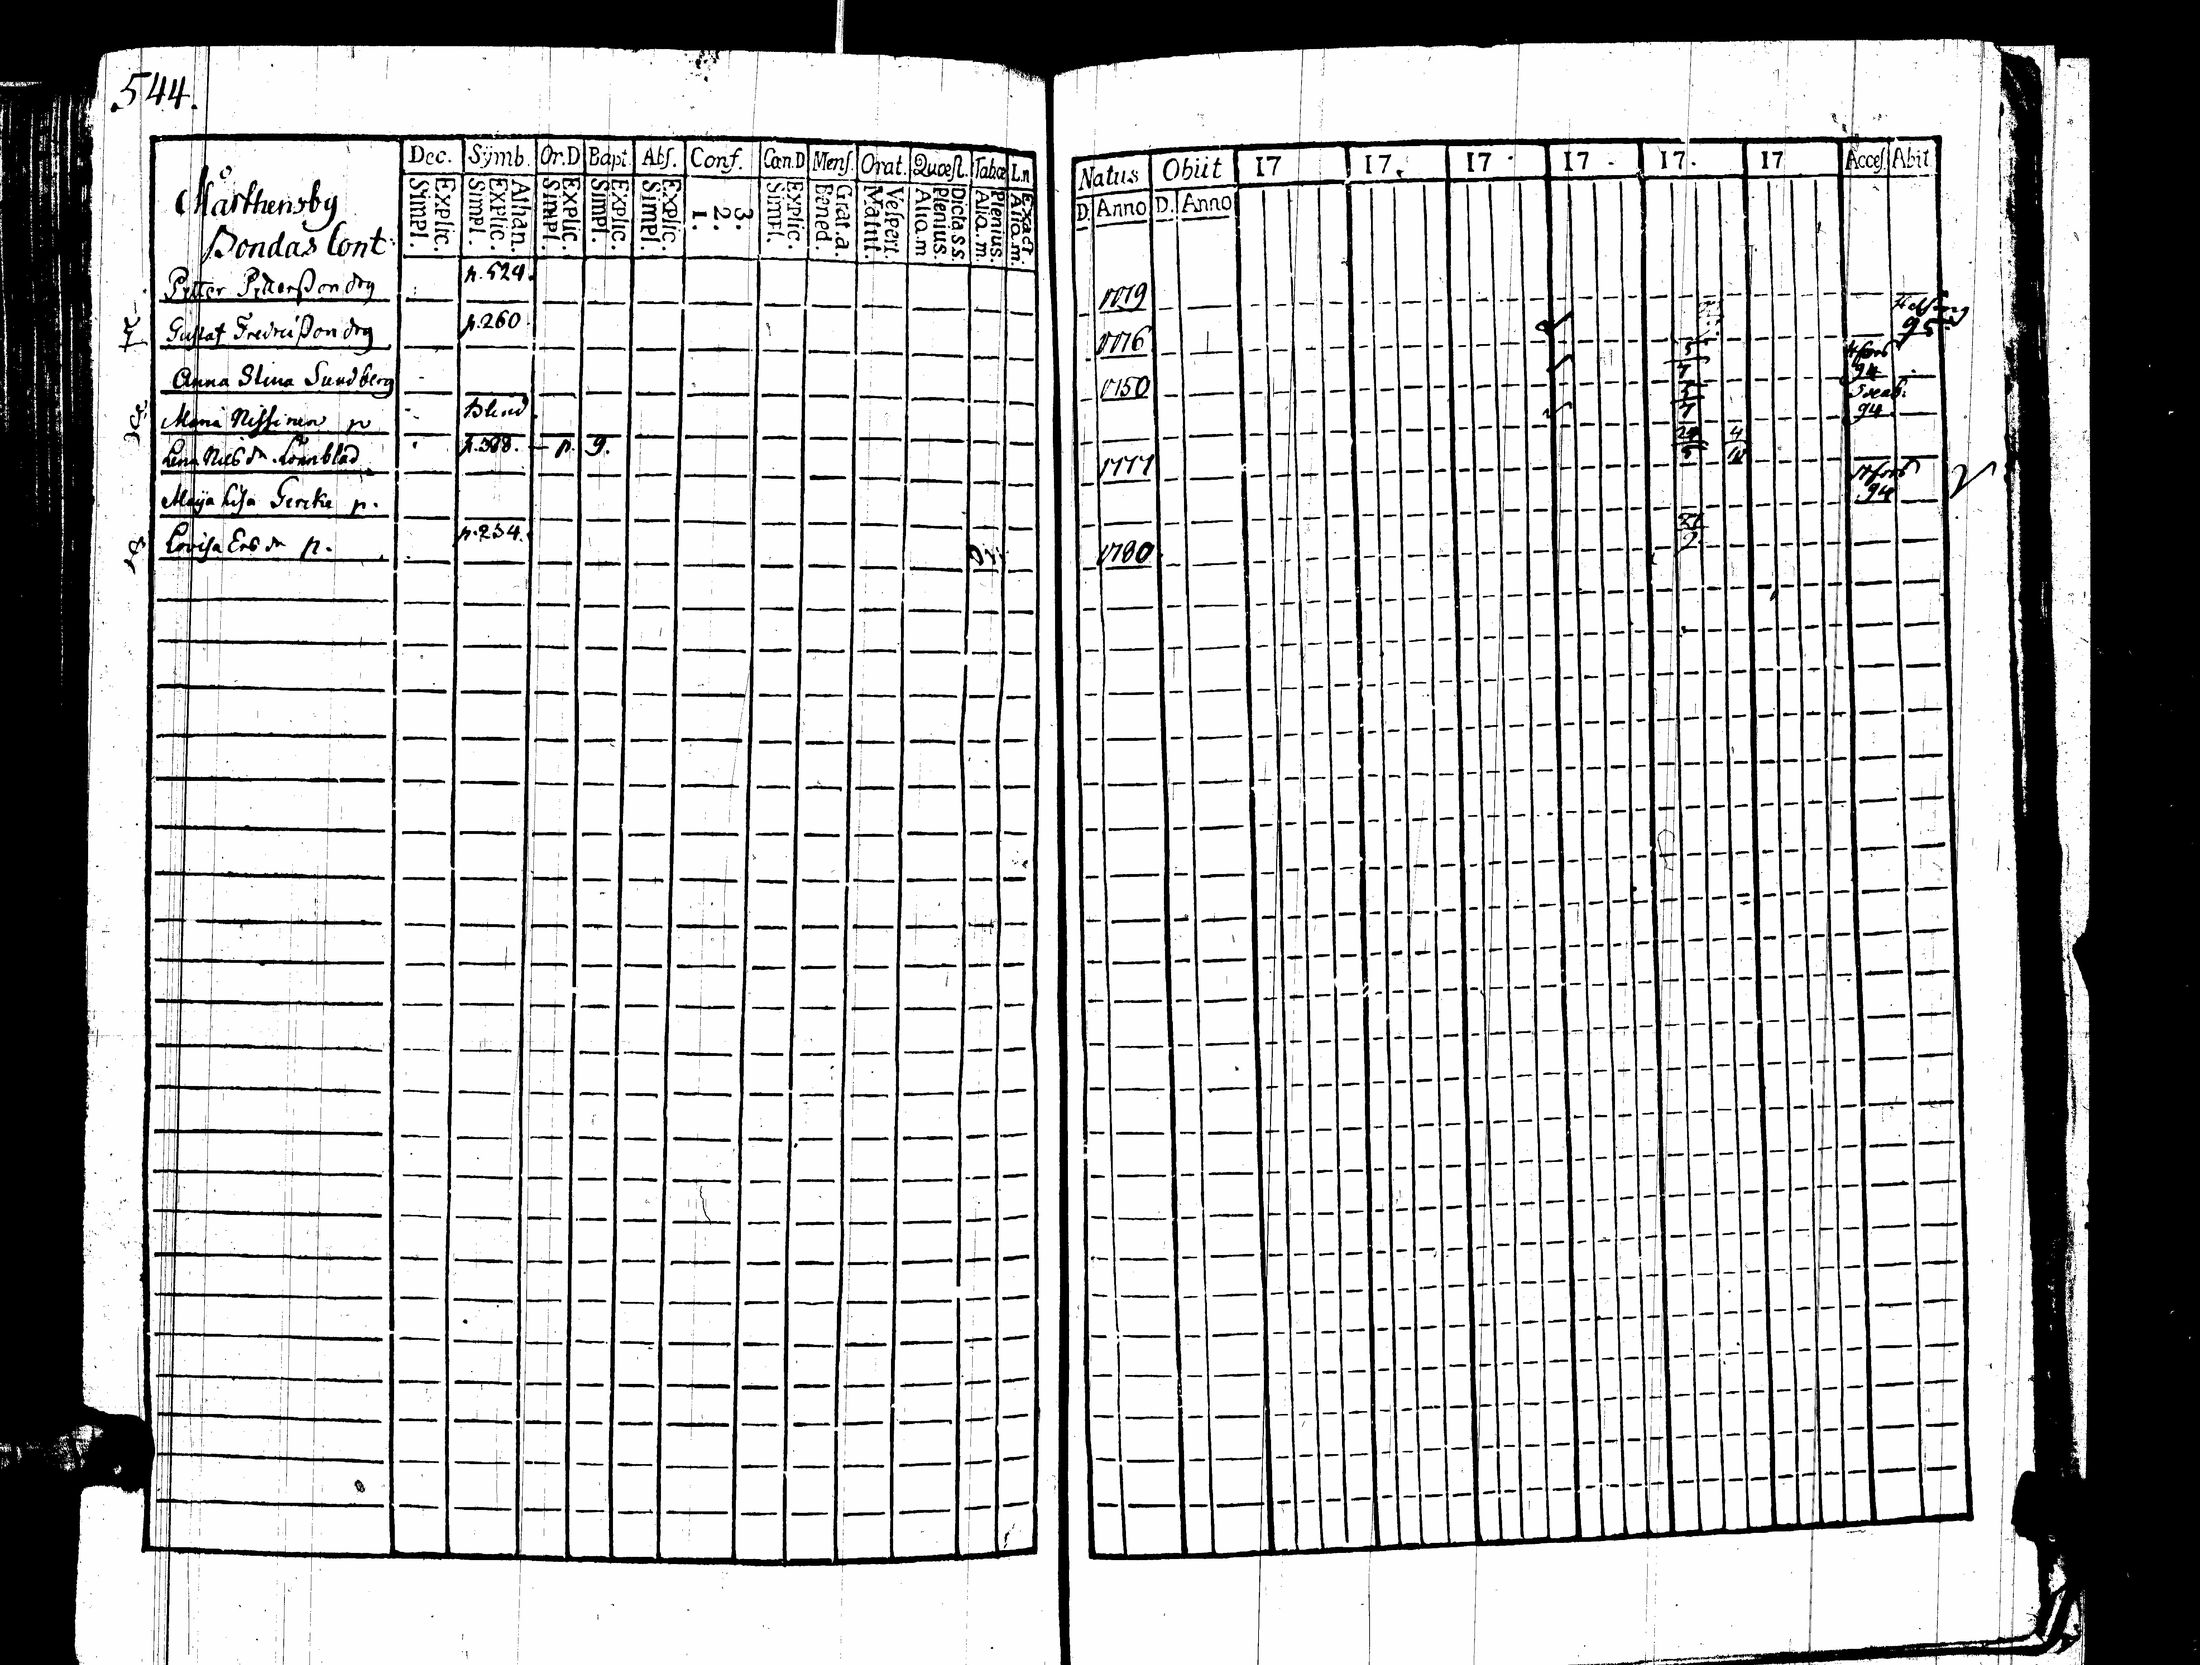 544.
Mårthensby
Bondas Cont.
Dec. Symb. Or.D Bapt. Abs. Conf. Can.D Mens. Orat. Quæst. Tabæ L.n
Explic. Simpl. Athan. Explic. Simpl. Explic. Simpl. Explic. Simpl. Explic. Simpl. 3. 2. 1. Explic. Simpl. Grat.a. Bened. Vespert. Matut. Dicta s.s Plenius. Aliq.m Plenius Aliq.m. Exact. Aliq.m.
Natus Obiit 17 17. 17 17 17. 17 Acces. Abit
D. Anno D. Anno
Petter Pettersson drg p. 524. 1779 95
Gustaf Fredricsson drg p. 260 1776 Hfors 94
Anna Stina Sundberg 1750 94
Maria Nissinen p Blind
Lena Nils dr. Lönnblad p. 388. p. 9. 1777 Hfors 94
Maja Lisa Gercke p.
Lovisa Ers dr p. p. 234. 1780